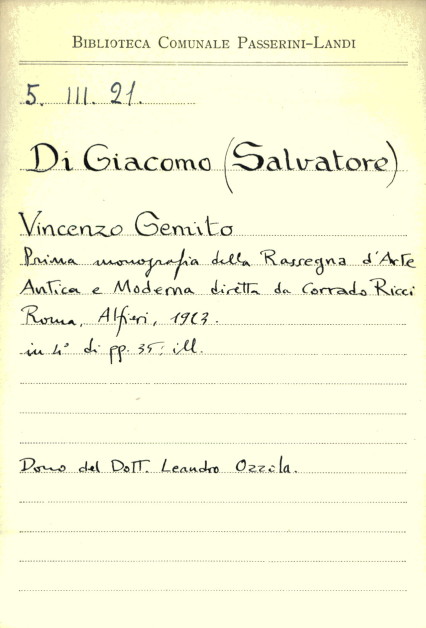 BIBLIOTECA COMUNALE PASSERINI-LANDI
5. III. 21.
Di Giacomo (Salvatore)
Vincenzo Gemito
Prima monografia della Rassegna d'Arte
Antica e Moderna diretta da Corrado Ricci
Roma, Alfieri,
in 4° di pp. 35: ill.
Dono del Dott. Leandro